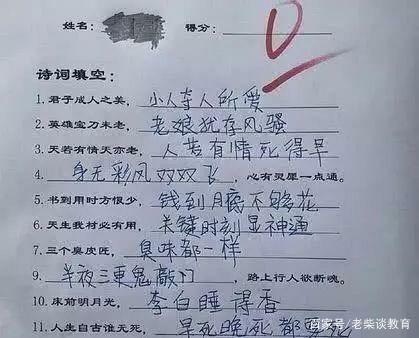 姓名： 得分： 0
诗词填空：
1.君子成人之美，小人夺人所爱
2.英雄宝刀未老，老娘犹存风骚
3.天若有情天亦老，人若有情死得早
4.身无彩凤双双飞，心有灵犀一点通。
5.书到用时方恨少，钱到月底不够花
6.天生我材必有用，关键时刻显神通
7.三个臭皮匠，臭味都一样
9.半夜三更鬼敲门，路上行人欲断魂。
10.床前明月光，李白睡得香
11.人生自古谁无死，早死晚死都要死
百家号/老柴谈教育